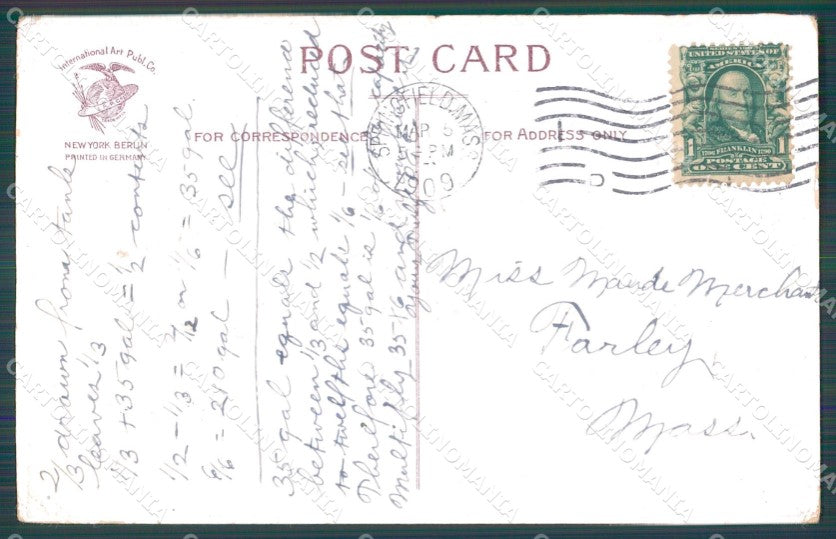 International Art Publ. Co.
NEW YORK BERLIN
PRINTED IN GERMANY
POST CARD
FOR CORRESPONDENCE
FOR ADDRESS ONLY
SPRINGFIELD, MASS.
MAR 5
PM
09
UNITED STATES OF
AMERICA
1790 FRANKLIN 1790
POSTAGE
1 ONE CENT 1
Miss Maude Merchant
Farley
Mass.
2/3 drawn from tank
leaves 1/3
1/3 + 35 gal = 1/2 contents
1/2 - 1/3 = 1/2 or 1/6 = 35 gal.
6/6 = 210 gal - see
35 gal equals the difference
between 1/3 and 1/2 which reduced
to twelfths equals 1/6 - see that
Therefore 35 gal is 1/6 of capacity
Multiply 35 · 1/6 and
CARTOLINOMANIA